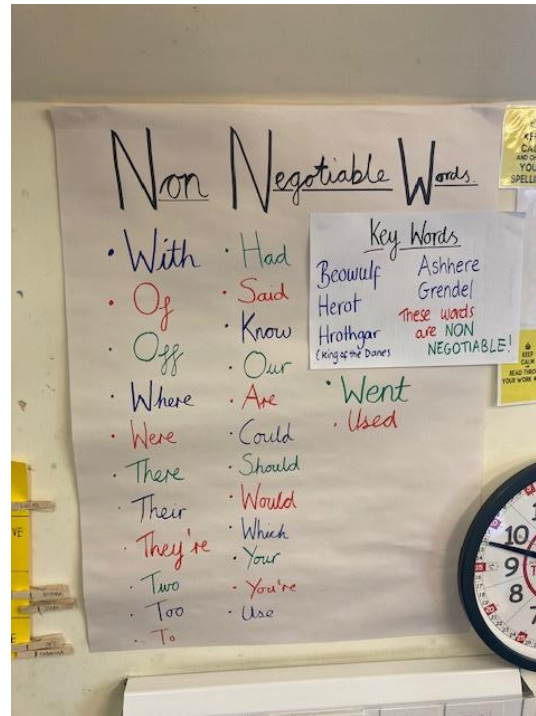 Non Negotiable Words.
• With
• Of
• Off
• Where
• Were
• There
• Their
• They're
• Two
• Too
• To
• Had
• Said
• Know
• Our
• Are
• Could
• Should
• Would
• Which
• Your
• You're
• Use
Key Words
Beowulf
Herot
Hrothgar
(King of the Danes
Ashhere
Grendel
These words
are NON
NEGOTIABLE!
• Went
• Used
KEEP
CALM
AND
YOUR
SPELLI
KEEP
CALM
READ THRO
YOUR WORK
10
9
8